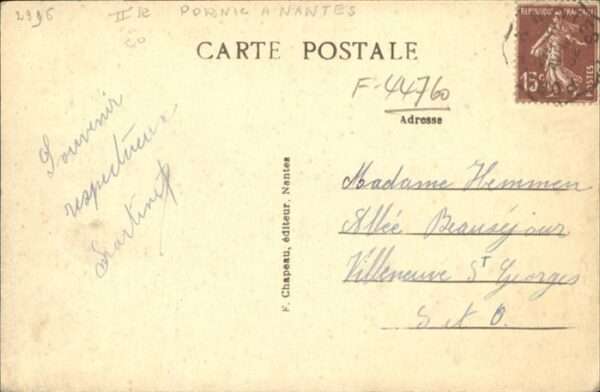 2996 II R PORNIC A NANTES
CARTE POSTALE
REPUBLIQUE FRANCAISE
15c
POSTES
F-44760
Adresse
Souvenir
respectueux
F. Chapeau, éditeur, Nantes
Madame Hemmen
Allée Beauséjour
Villeneuve St Georges
S et O.